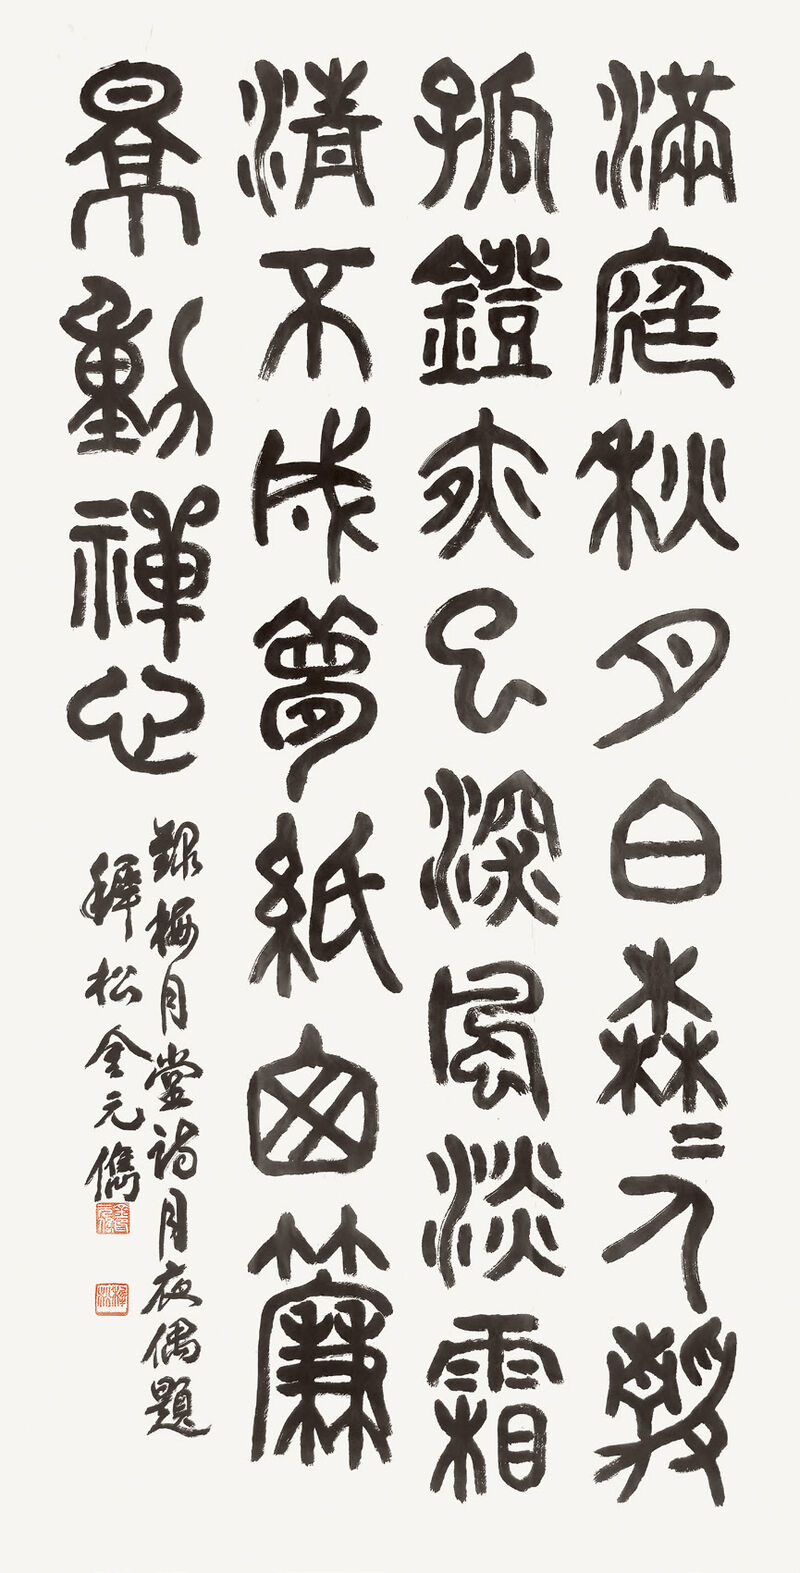 滿庭秋月白森〻人靜
孤鐙夜已深風淡霜
清不成夢紙囱簾
景動禪心
錄梅月堂詩月夜偶題
釋松金元儁